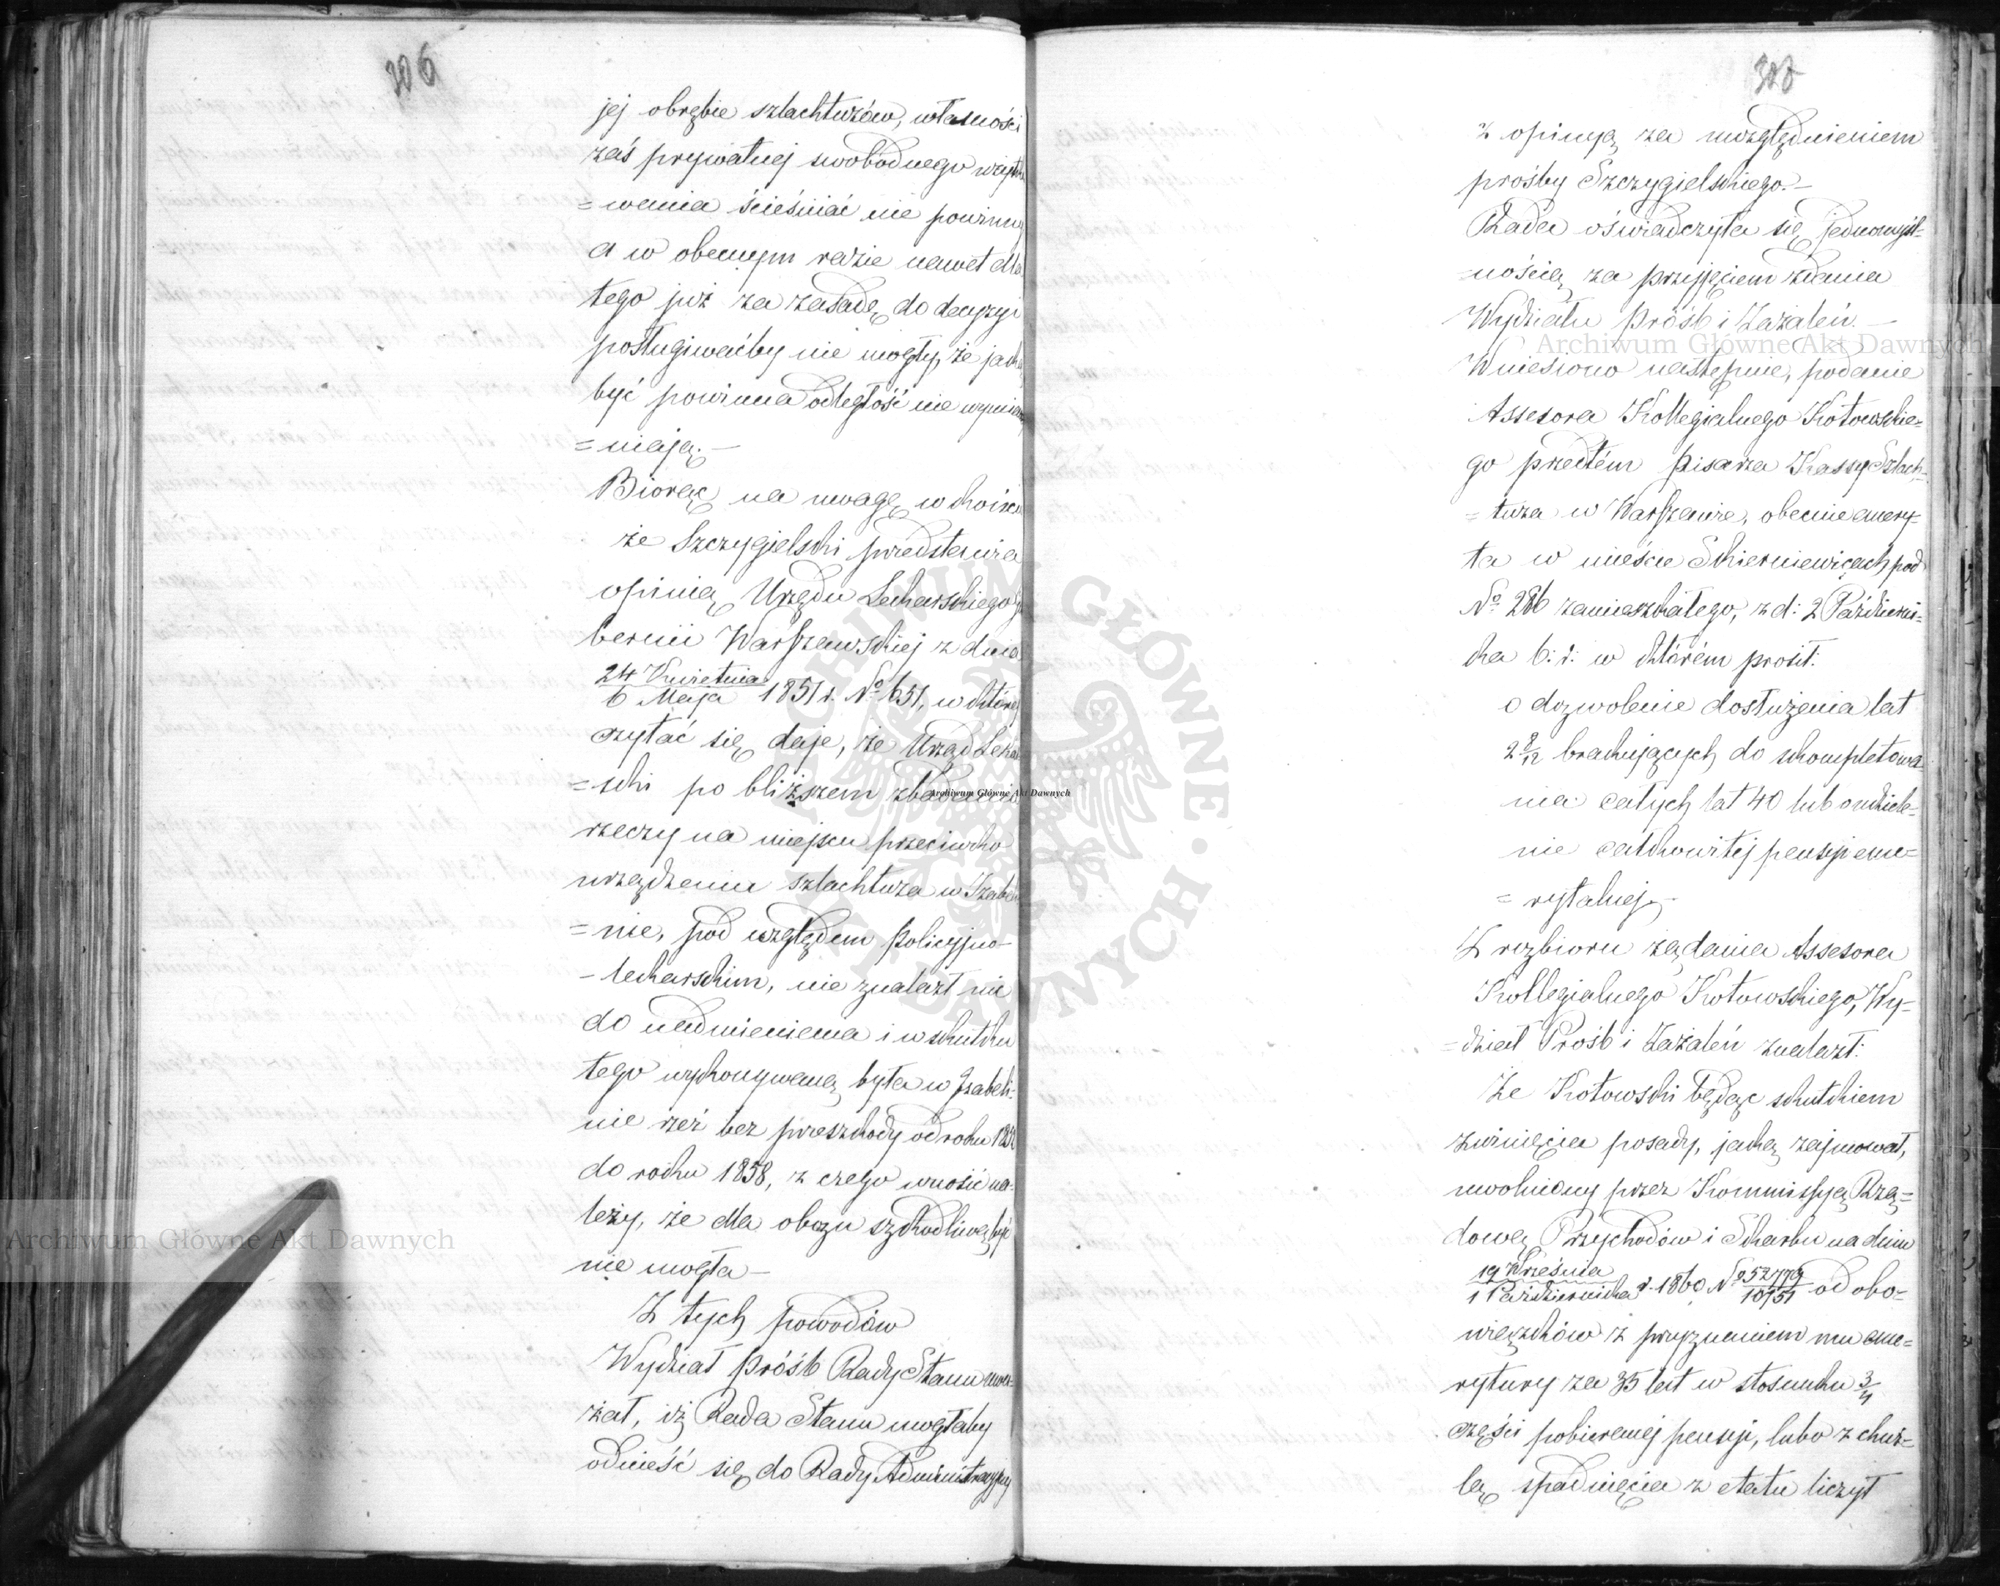 306
jej obrębie szlachtuzów, własności
zaś prywatnej swobodnego użytko
=wania ścieśniać nie powinny
a w obecnym razie nawet dla
tego już za zasadę do decyzyi
posługiwaćby nie mogły, że jaka
być powinna odległość nie wymie
=niają.—
Biorąc na uwagę w końcu
że Szczygielski przedstawia
opinią Urzędu Lekarskiego Gu
bernii Warszawskiej z dnia
24 Kwietnia
6 Maja 1851 r. No 651, w której
czytać się daje, że Urząd Lekar
=ski po bliższem zbadaniu
rzeczy na miejscu przeciwko
urządzeniu szlachtuza w Izabeli
=nie, pod względem Policyjno-
-lekarskim, nie znalazł nic
do nadmienienia i w skutku
tego wykonywaną była w Izabeli-
nie rzeź bez przeszkody od roku
do roku 1858, z czego wnosić na-
leży, że dla obozu szkodliwą być
nie mogła—
Z tych powodów
Wydział Próśb Rady Stanu uwa-
żał, iż Rada Stanu mogłaby
odnieść się do Rady Administracyjnej
z opinią za uwzględnieniem
prośby Szczygielskiego.—
Rada oświadczyła się jednomyśl-
=nością za przyjęciem zdania
Wydziału Próśb i Zażaleń.—
Wniesiono następnie, podanie
Assesora Kollegialnego Kotowskie-
go przedtém Pisarza Kassy Szlach-
=tuza w Warszawie, obecnie emery-
ta w mieście Skierniewicach pod
No 286 zamieszkałego, z d: 2 Październi-
ka b: r: w którém prosił:
o dozwolenie dosłużenia lat
2 brakujących do skompletowa-
nia całych lat 40 lub o udziele-
nie całkowitej pensyi eme=
=rytalnej.—
Z rozbioru żądania Assesora
Kollegialnego Kotowskiego, Wy-
=dział Próśb i Zażaleń znalazł:
Że Kotowski będąc skutkiem
zwinięcia posady, jaką zajmował,
uwolniony przez Kommissyą Rzą=
dową Przychodów i Skarbu na dniu
19 Września
1 Października r. 1860 No 52779/10151 od obo-
wiązków z przyznaniem mu eme-
rytury za 35 lat w stosunku 3/4
części pobieranej pensyi, lubo z chwi-
lą spadnięcia z etatu liczył
Archiwum Główne Akt Dawnych
Archiwum Główne Akt Dawnych
Archiwum Główne Akt Dawnych
ARCHIWUM GŁÓWNE AKT DAWNYCH